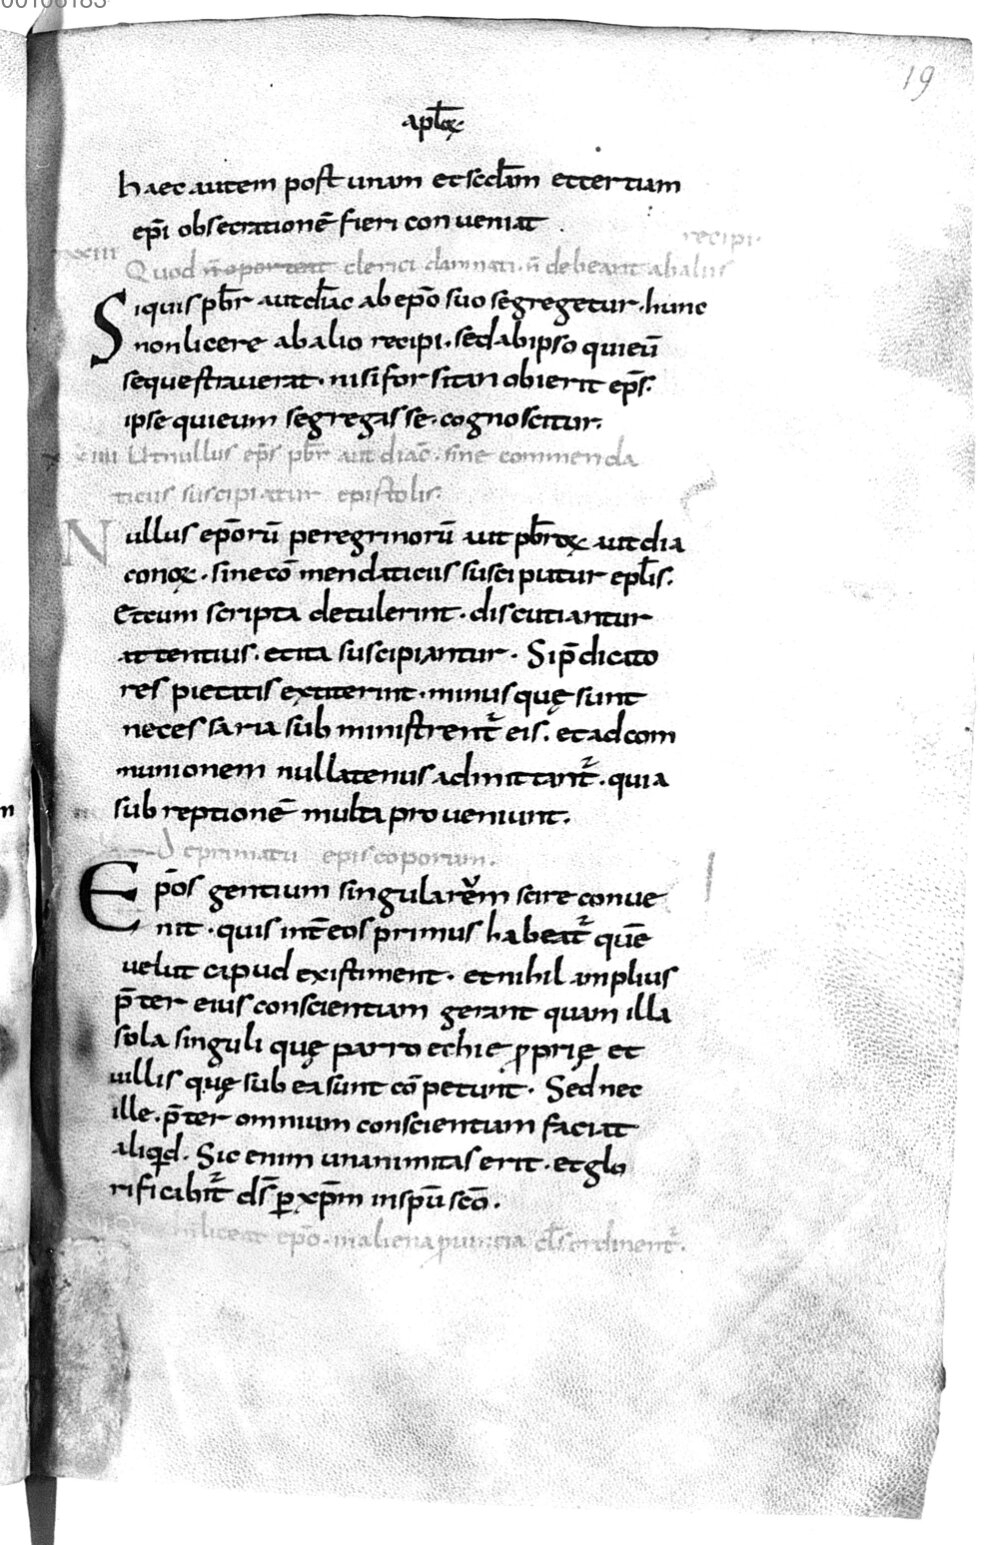 19
aplõꝝ
haec autem post unam et secdãm et tertiam
epĩ obsecrationẽ fieri conueniat .
recipi.
xxxiii
Quod ñ oportent clerici damnati. ñ debeant ab aliis
Siquis pbr̃ aut diãc ab epõ suo segregetur. hunc
non licere ab alio recipi. sed ab ipso qui eũ
sequestrauerat. nisi forsitan obierit ep̃s.
ipse qui eum segregasse. cognoscitur.
xxxiiii Ut nullus ep̃s pbr̃ aut diac̃. sine commenda
ticiis suscipiatur epistolis.
Nullus epõrũ peregrinorũ aut pbr̃oꝝ aut dia
conoꝝ. sine cõmendaticiis suscipiatur epl̃is.
Et cum scripta detulerint. discutiantur
attentius. et ita suscipiantur. Si p̃dicato
res pietatis extiterint. minus quę sunt
necessaria subministrent᷑ eis. et ad com
munionem nullatenus admittant᷑. quia
subreptionẽ multa proueniunt.
De primatu episcoporum.
Epõs gentium singularẽm scire conue
nit. quis int̃ eos primus habeat᷑ quẽ
uelut capud existiment. et nihil amplius
p̃ter eius conscientiam gerant quam illa
sola singuli quę parrochię ꝓprię et
uillis quę sub ea sunt cõpetunt. Sed nec
ille. p̃ter omnium conscientiam faciat
aliqid. Sic enim unanimitas erit. et glo
rificabit᷑ ds̃ ꝑ xp̃m in spũ scõ.
ñ liceat epõ. in aliena ꝓuincia cl̃s ordinent᷑.